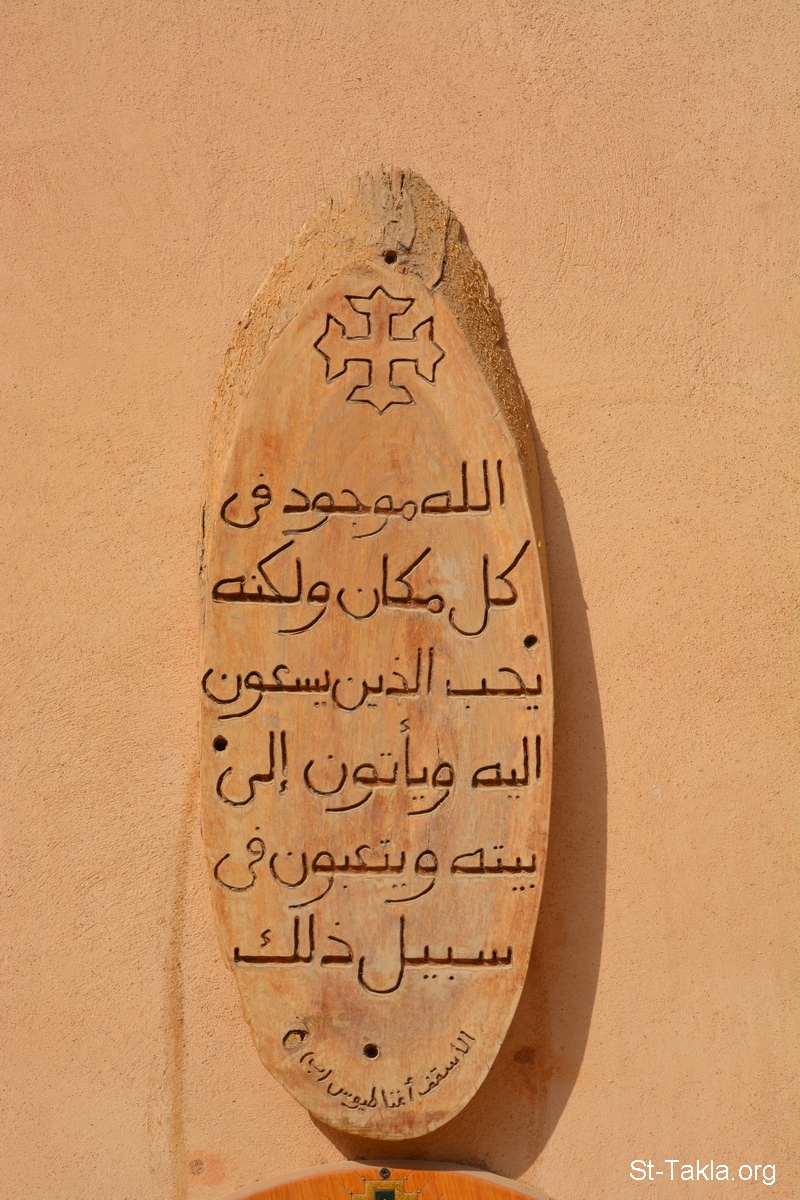 الله موجود فى
كل مكان ولكنه
يحب الذين يسعون
اليه ويأتون إلى
بيته ويتعبون فى
سبيل ذلك
الأسقف أغناطيوس (ب)
St-Takla.org